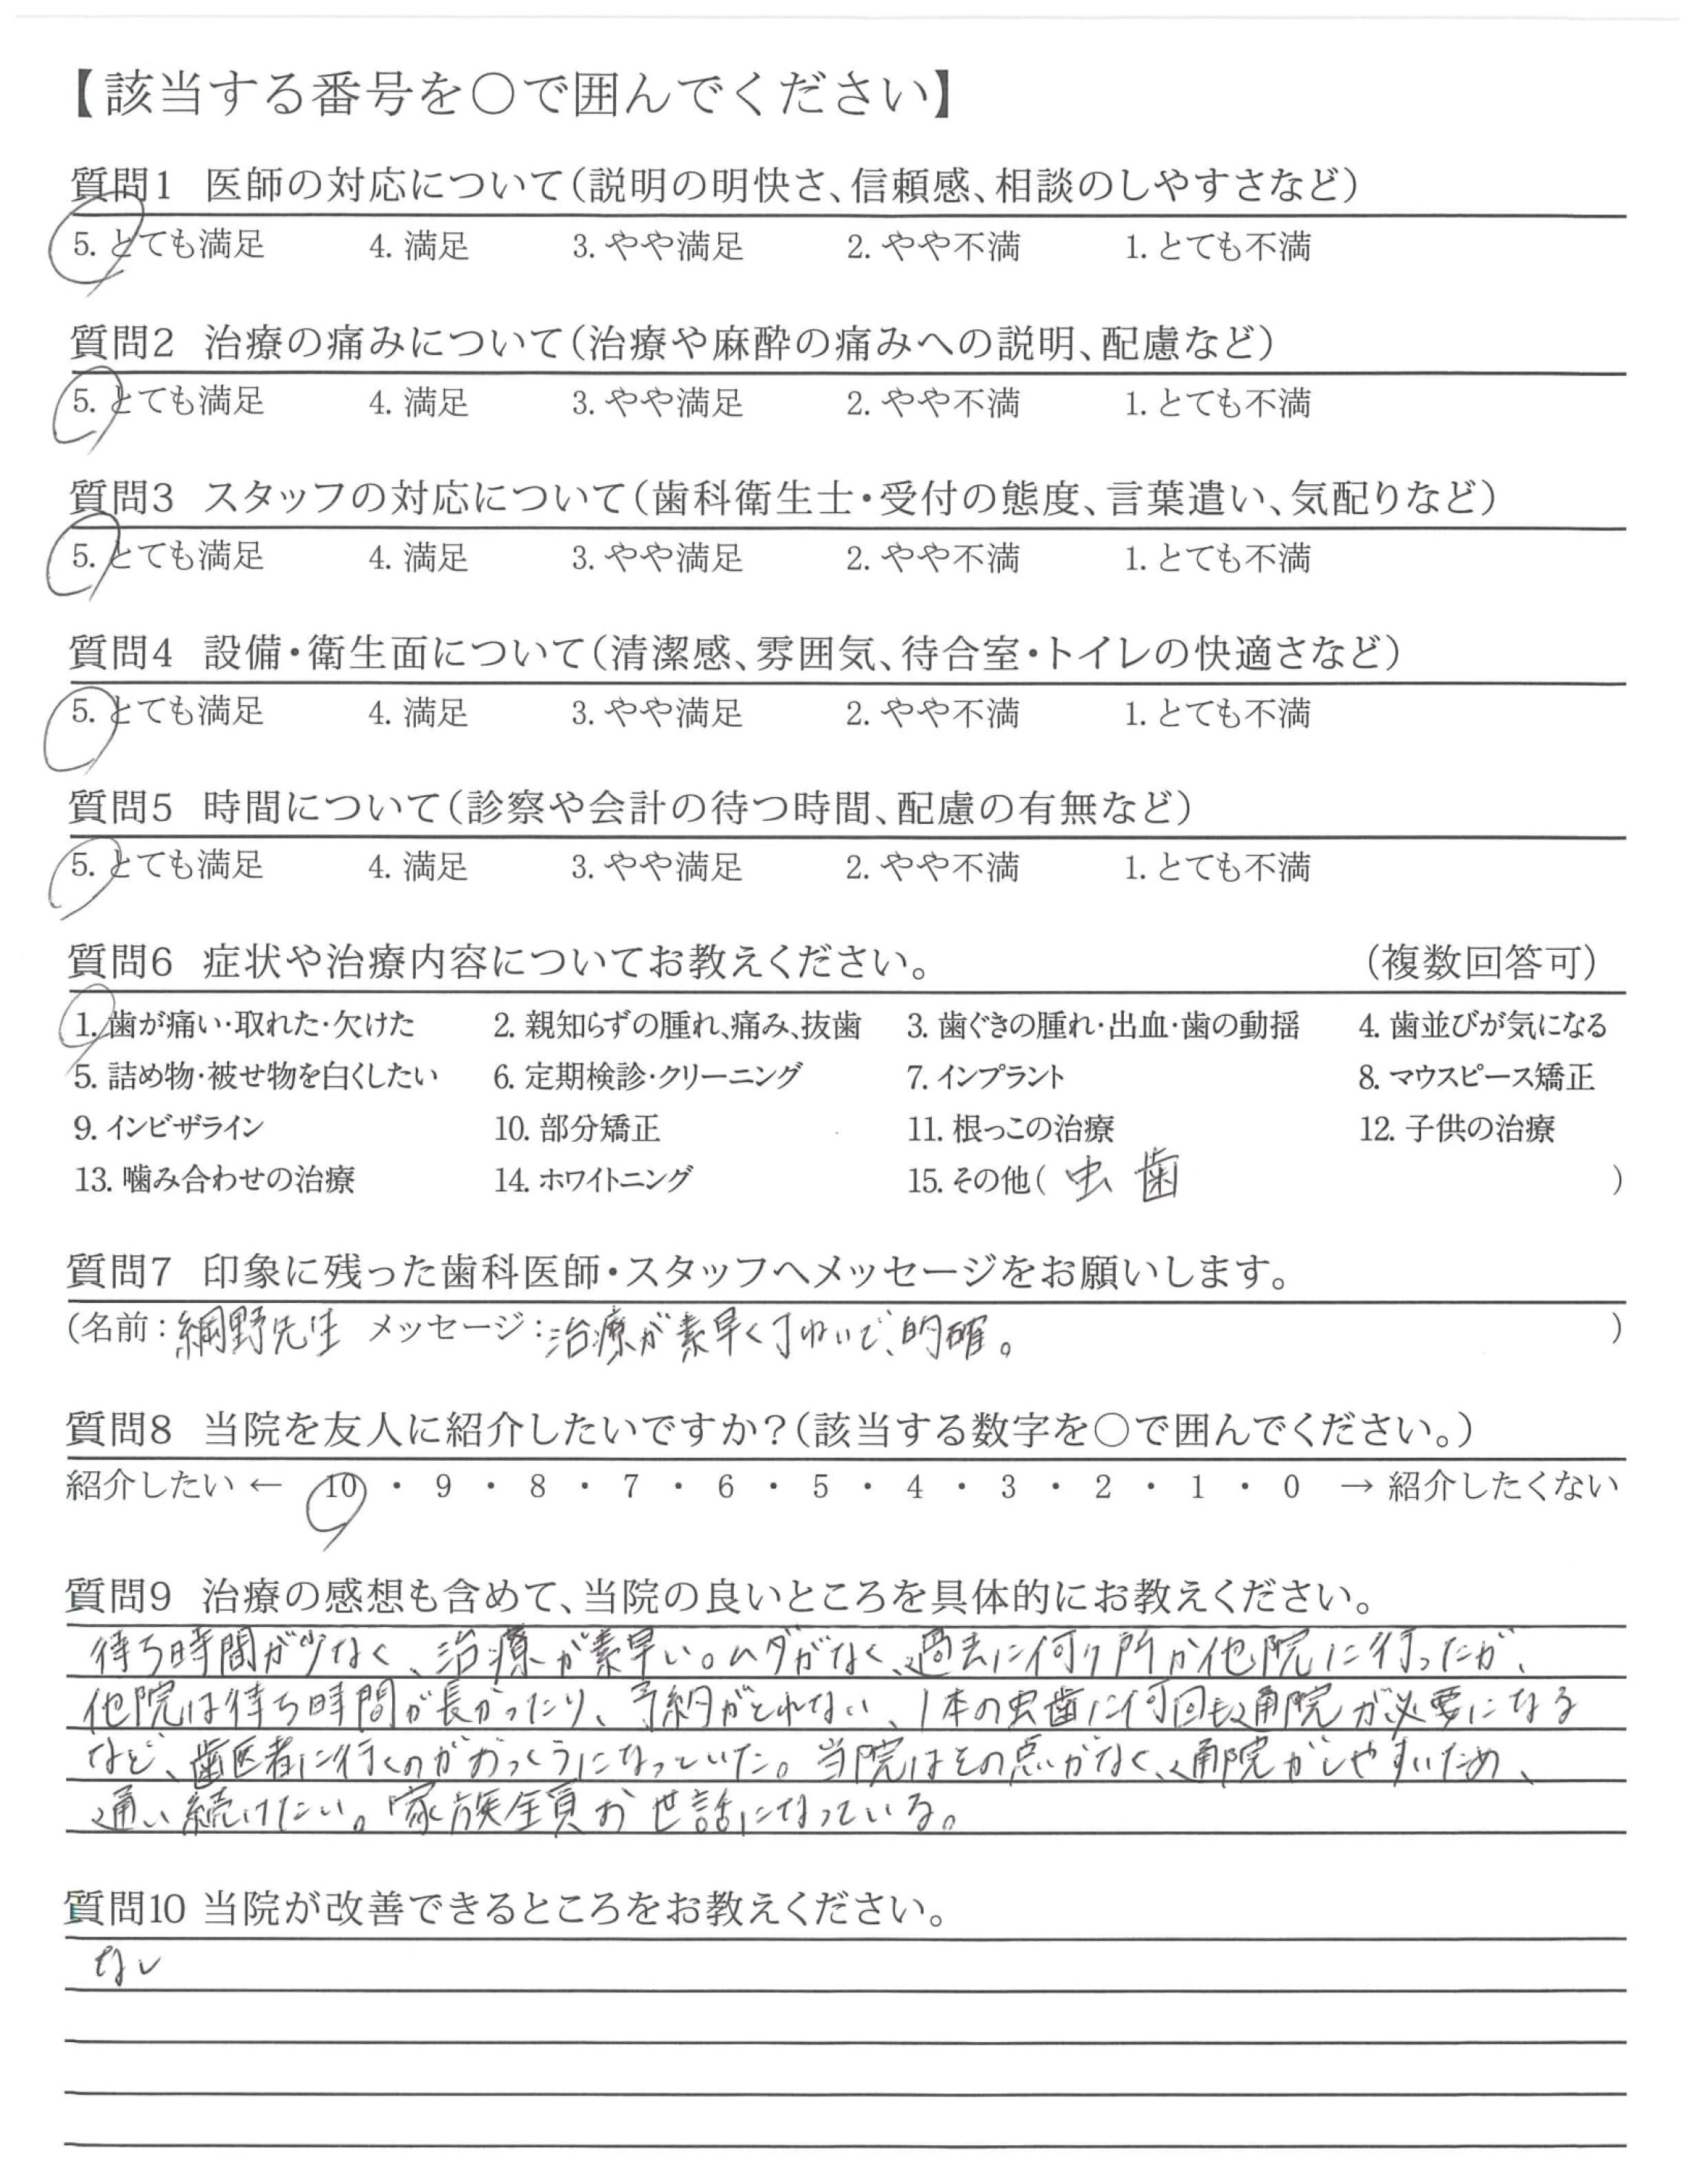 【該当する番号を○で囲んでください】
質問1 医師の対応について(説明の明快さ、信頼感、相談のしやすさなど)
5. とても満足 4. 満足 3. やや満足 2. やや不満 1. とても不満
質問2 治療の痛みについて(治療や麻酔の痛みへの説明、配慮など)
5. とても満足 4. 満足 3. やや満足 2. やや不満 1. とても不満
質問3 スタッフの対応について(歯科衛生士・受付の態度、言葉遣い、気配りなど)
5. とても満足 4. 満足 3. やや満足 2. やや不満 1. とても不満
質問4 設備・衛生面について(清潔感、雰囲気、待合室・トイレの快適さなど)
5. とても満足 4. 満足 3. やや満足 2. やや不満 1. とても不満
質問5 時間について(診察や会計の待つ時間、配慮の有無など)
5. とても満足 4. 満足 3. やや満足 2. やや不満 1. とても不満
質問6 症状や治療内容についてお教えください。 (複数回答可)
1. 歯が痛い・取れた・欠けた 2. 親知らずの腫れ、痛み、抜歯 3. 歯ぐきの腫れ・出血・歯の動揺 4. 歯並びが気になる
5. 詰め物・被せ物を白くしたい 6. 定期検診・クリーニング 7. インプラント 8. マウスピース矯正
9. インビザライン 10. 部分矯正 11. 根っこの治療 12. 子供の治療
13. 噛み合わせの治療 14. ホワイトニング 15. その他( 虫歯 )
質問7 印象に残った歯科医師・スタッフへメッセージをお願いします。
(名前:綱野先生 メッセージ:治療が素早く丁ねいで、的確。 )
質問8 当院を友人に紹介したいですか?(該当する数字を○で囲んでください。)
紹介したい ← 10 ・ 9 ・ 8 ・ 7 ・ 6 ・ 5 ・ 4 ・ 3 ・ 2 ・ 1 ・ 0 → 紹介したくない
質問9 治療の感想も含めて、当院の良いところを具体的にお教えください。
待ち時間が少なく、治療が素早い。ムダがなく、過去に何ヶ所か他院に行ったが、
他院は待ち時間が長かったり、予約がとれない、1本の虫歯に何回も通院が必要になる
など、歯医者に行くのがおっくうになっていた。当院はその点がなく、通院がしやすいため、
通い続けたい。家族全員お世話になっている。
質問10 当院が改善できるところをお教えください。
なし